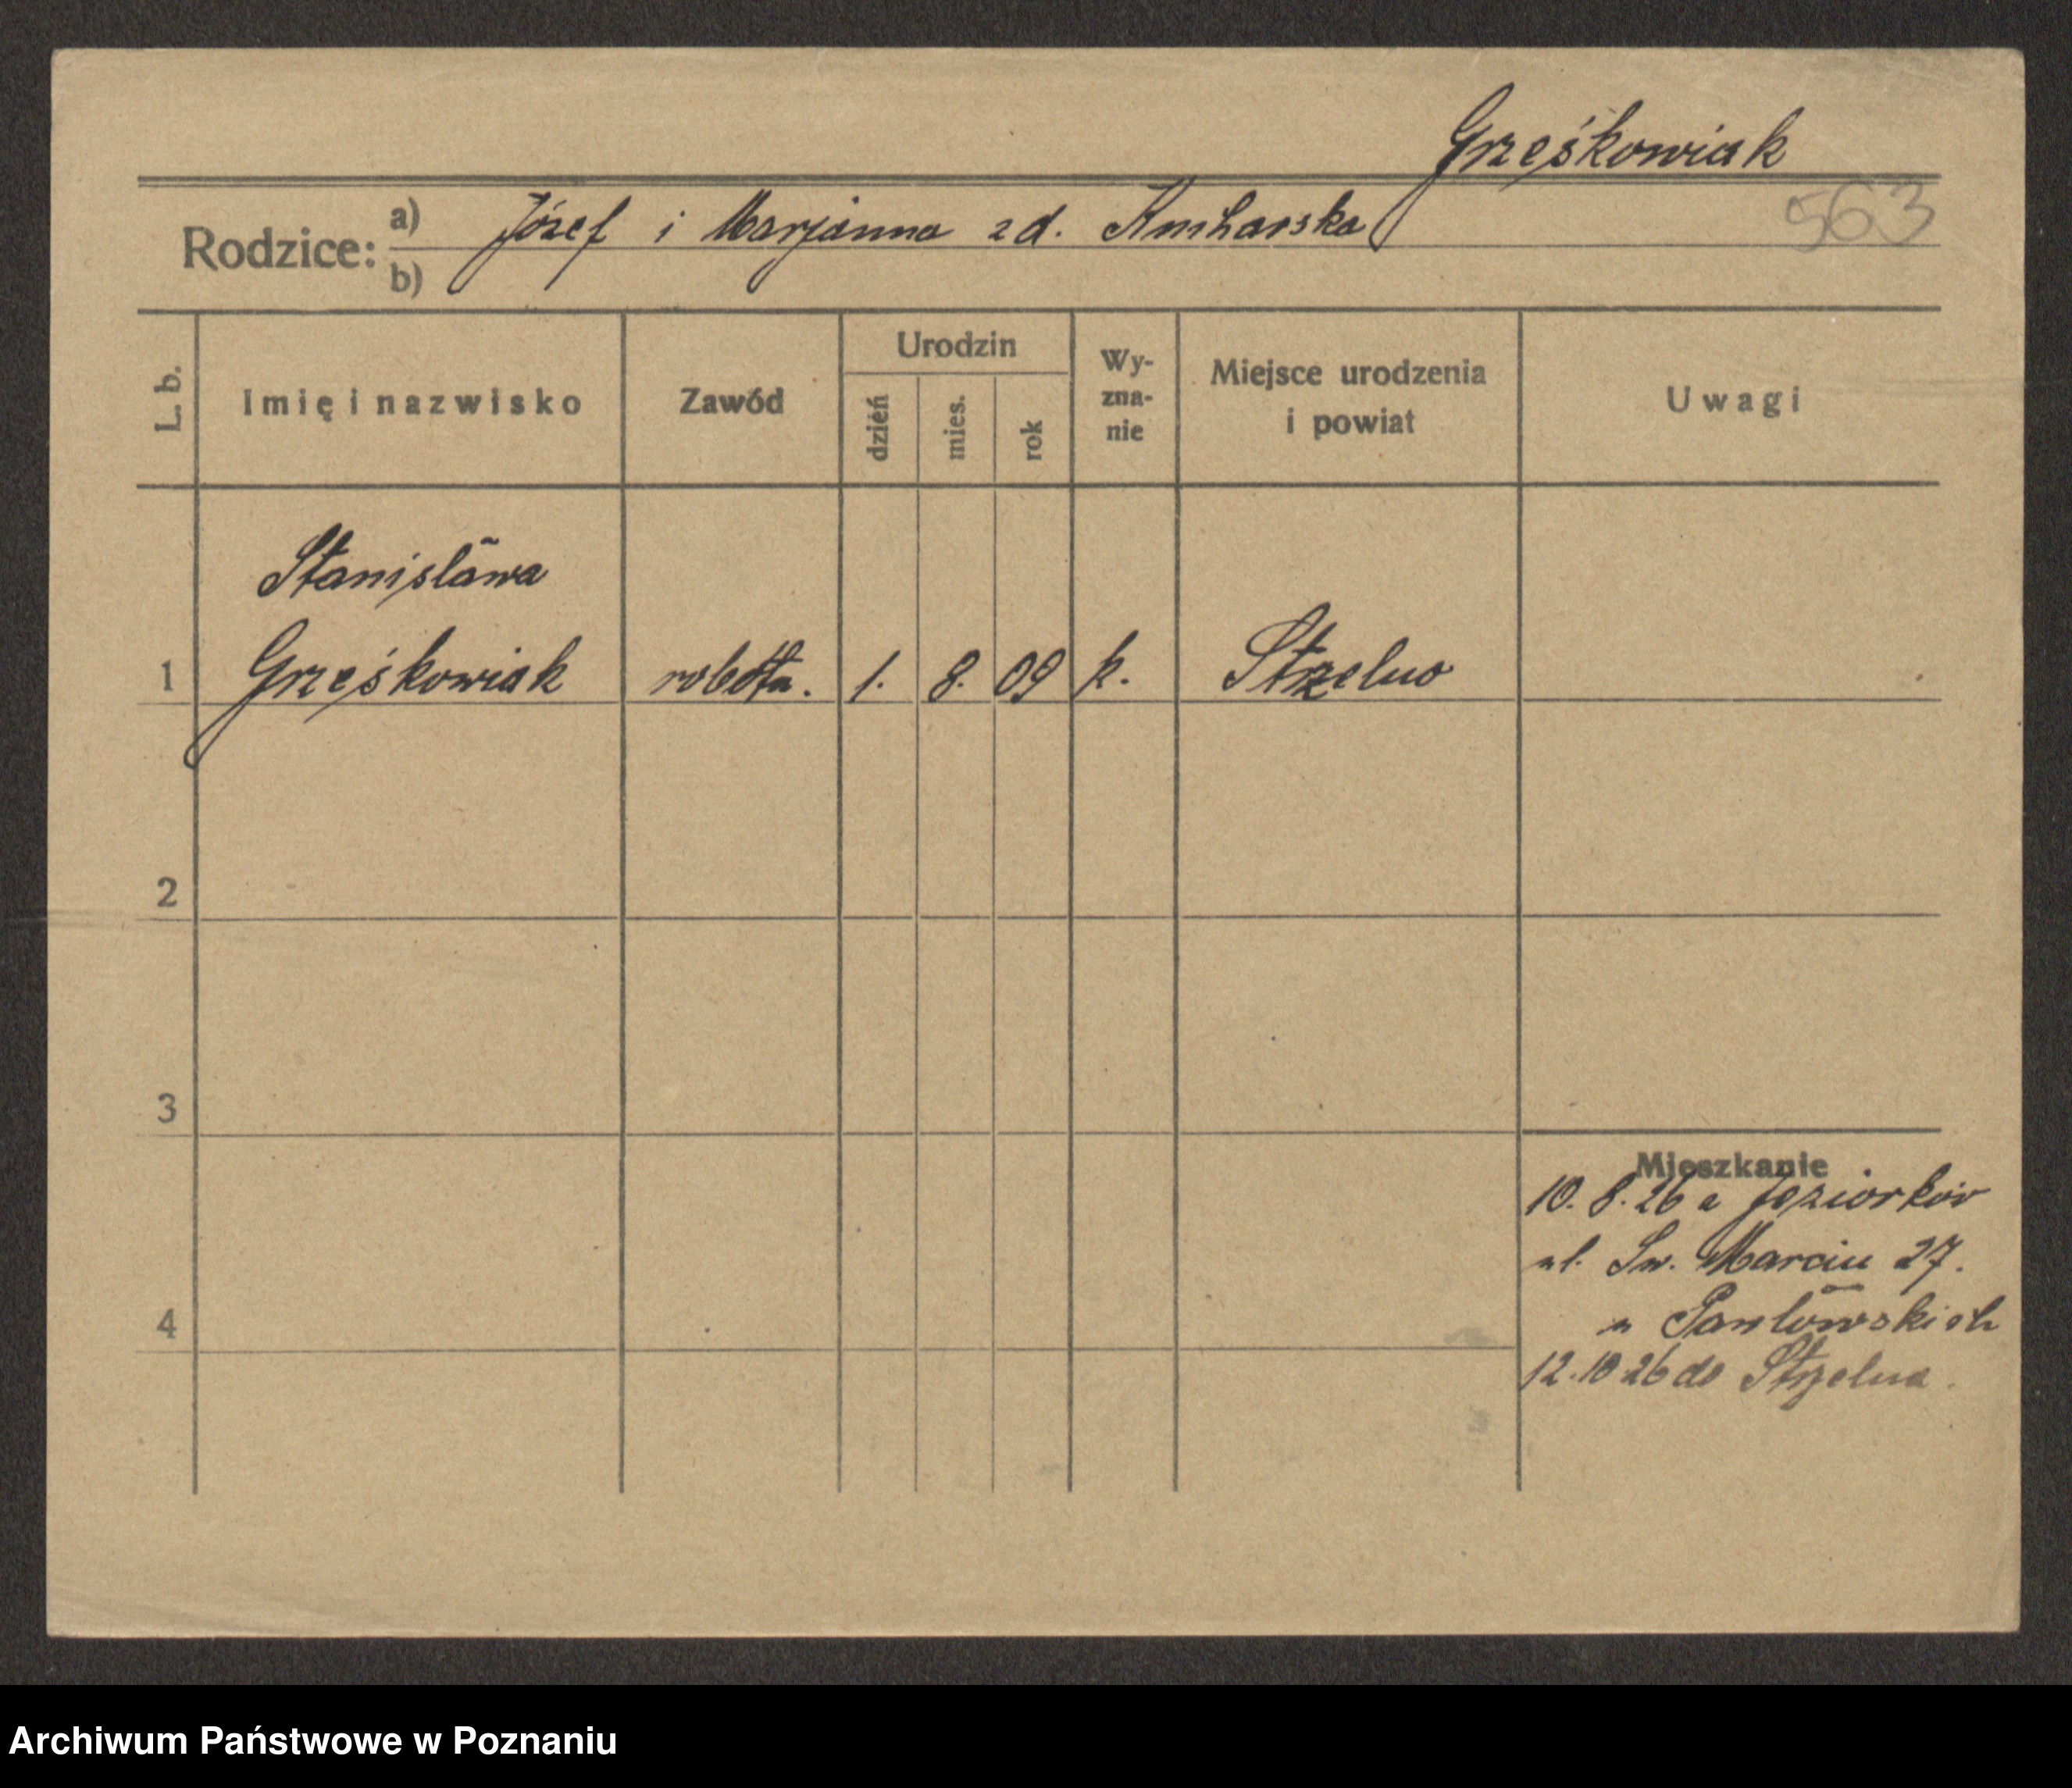 Grześkowiak
563
Rodzice: a) Józef i Marjanna zd.
b)
L. b.
Imię i nazwisko
Zawód
Urodzin
dzień
mies.
rok
Wy-
zna-
nie
Miejsce urodzenia
i powiat
Uwagi
Stanisława
1 Grześkowiak robotn. 1. 8. 09 k. Strzelno
2
3
4
Mieszkanie
10. 8. 26 z Jeziorków
ul. Św. Marcin 27.
u Pawłowskich
12.10.26 do Strzelna.
Archiwum Państwowe w Poznaniu